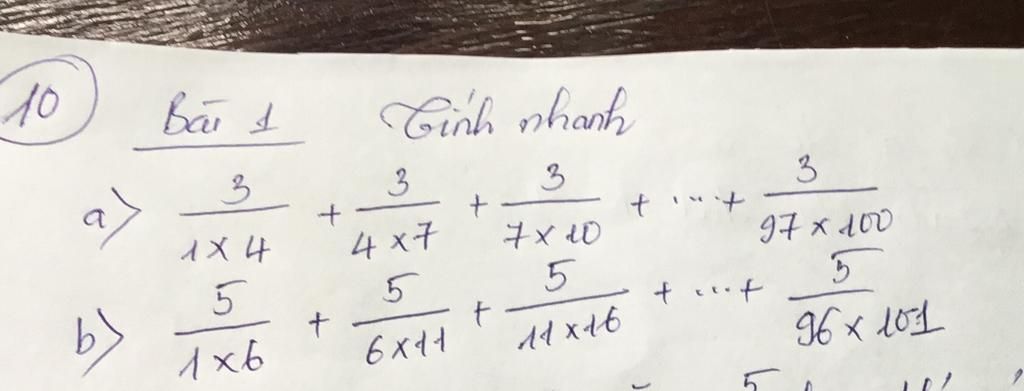 10 Bài 1 Tính nhanh
a) 3/(1 x 4) + 3/(4 x 7) + 3/(7 x 10) + ... + 3/(97 x 100)
b) 5/(1 x 6) + 5/(6 x 11) + 5/(11 x 16) + ... + 5/(96 x 101)
5